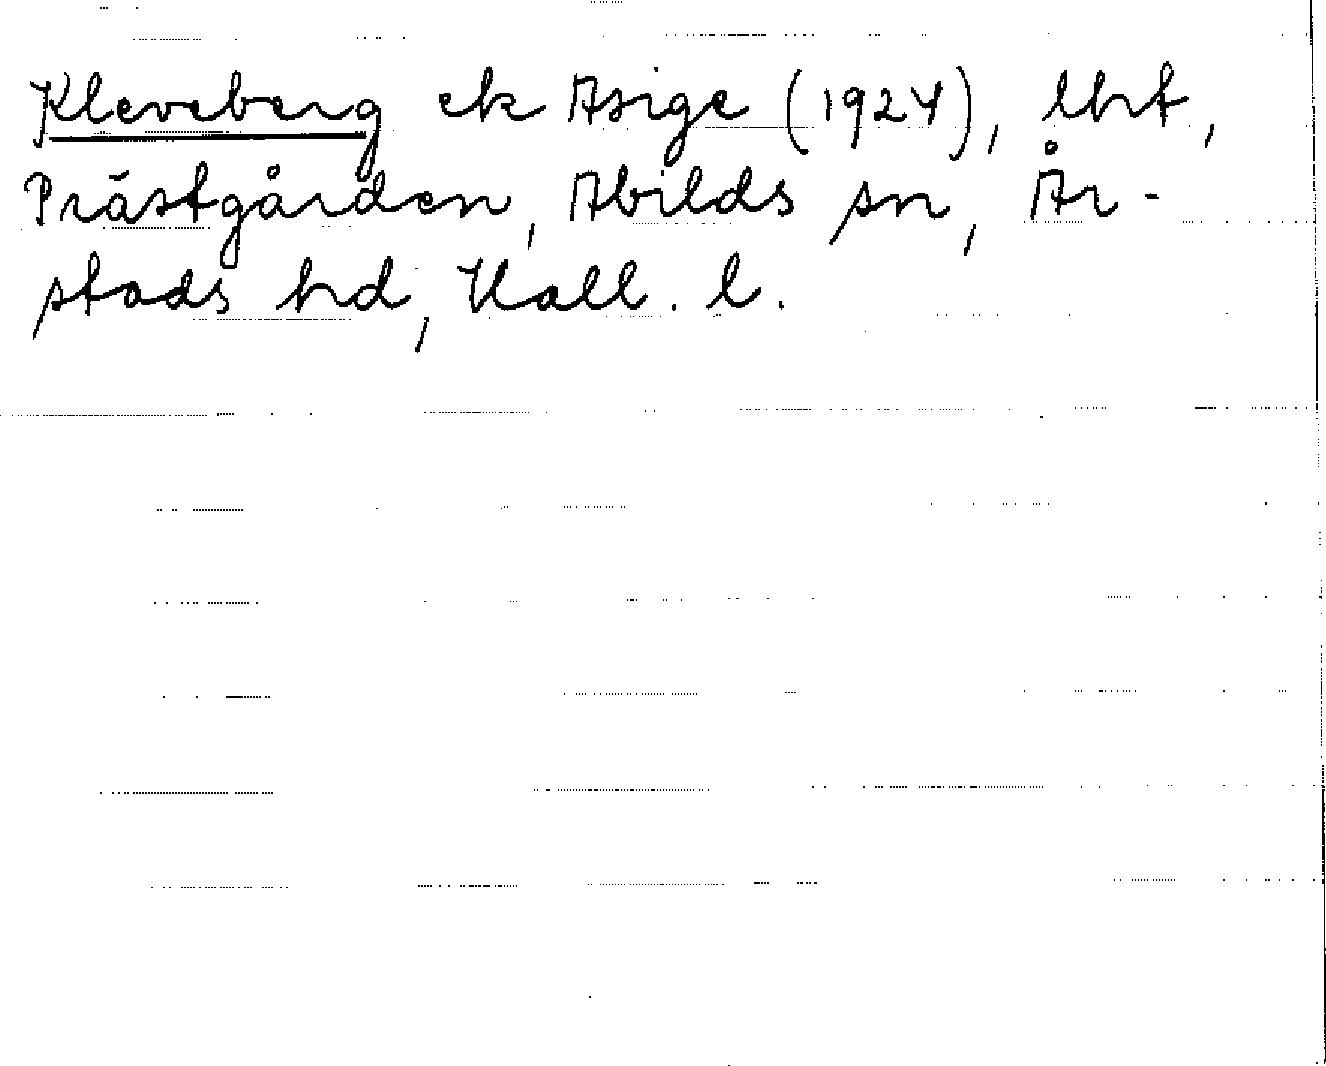 Kleveberg ek Asige (1924), lht,
Prästgården, Abilds sn, År-
stads hd, Hall. l.